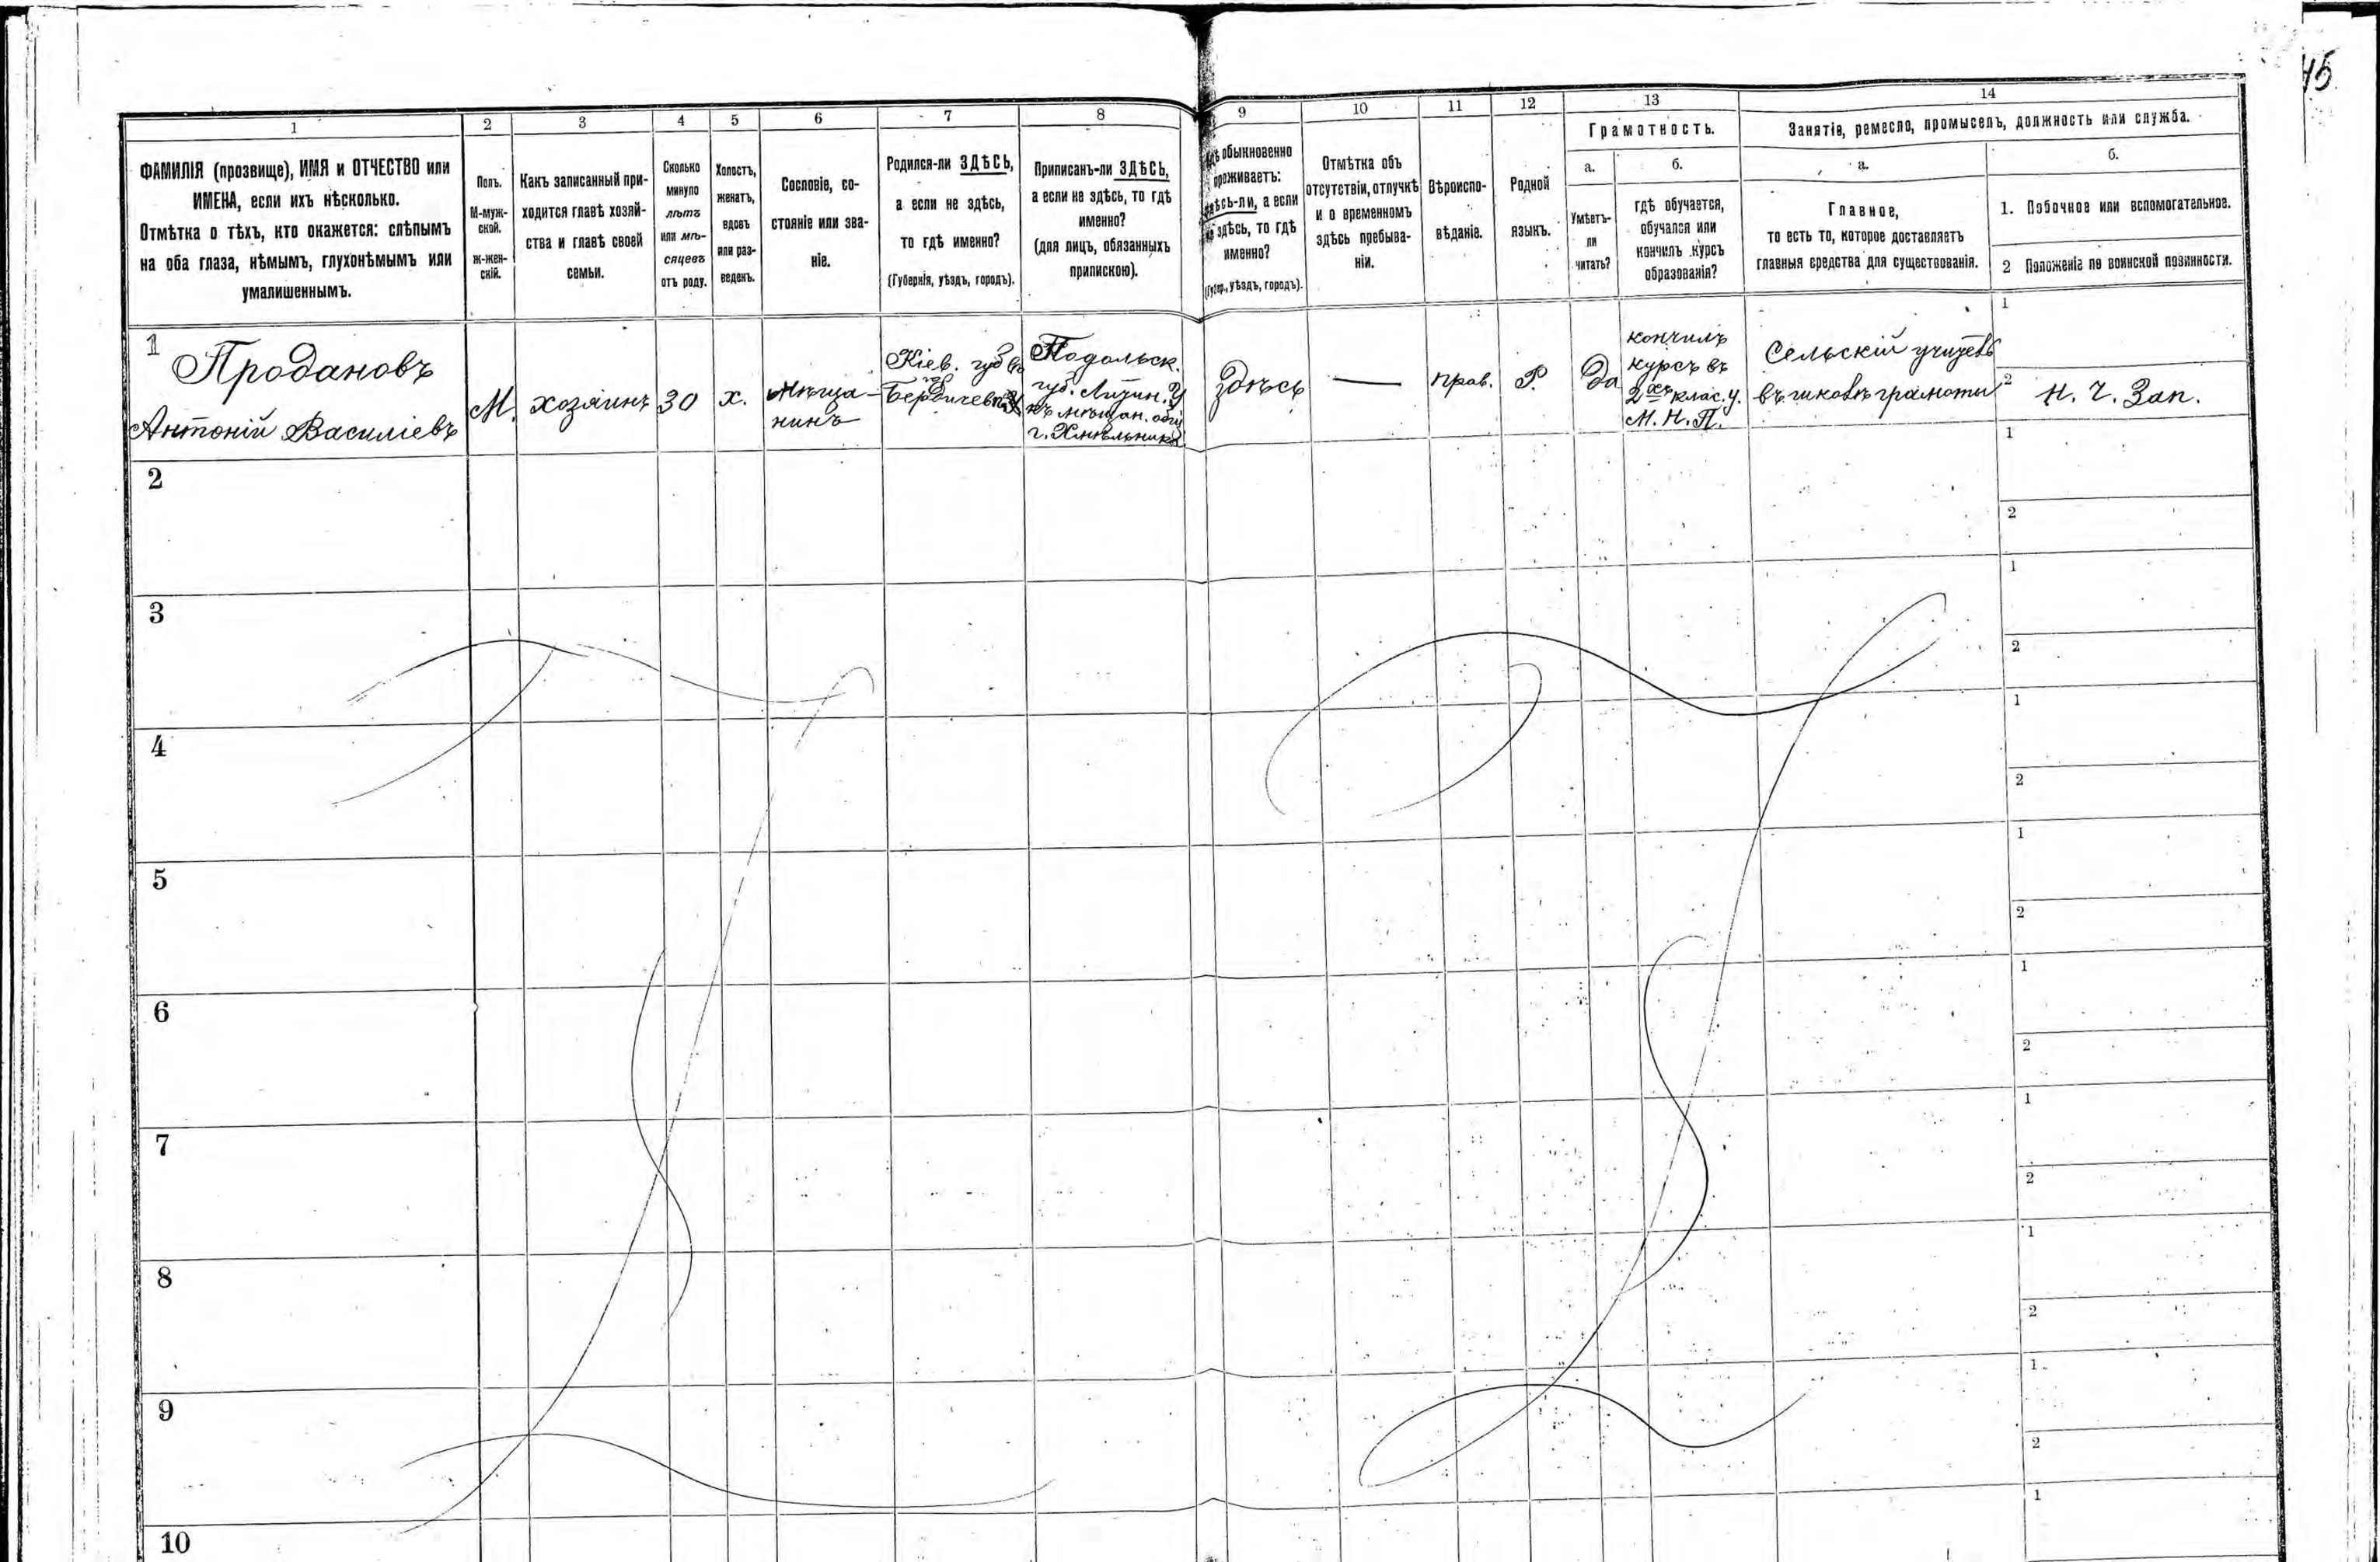 45
1
2
3
4
5
6
7
8
9
10
11
12
13
14
ФАМИЛІЯ (прозвище), ИМЯ и ОТЧЕСТВО или
ИМЕНА, если ихъ нѣсколько.
Отмѣтка о тѣхъ, кто окажется: слѣпымъ
на оба глаза, нѣмымъ, глухонѣмымъ или
умалишеннымъ.
Полъ.
М-муж-
ской.
Ж-жен-
скій.
Какъ записанный при-
ходится главѣ хозяй-
ства и главѣ своей
семьи.
Сколько
минуло
лѣтъ
или мѣ-
сяцевъ
отъ роду.
Холостъ,
женатъ,
вдовъ
или раз-
веденъ.
Сословіе, со-
стояніе или зва-
ніе.
Родился-ли ЗДѢСЬ,
а если не здѣсь,
то гдѣ именно?
(Губернія, уѣздъ, городъ).
Приписанъ-ли ЗДѢСЬ,
а если не здѣсь, то гдѣ
именно?
(для лицъ, обязанныхъ
припискою).
обыкновенно
проживаетъ:
здѣсь-ли, а если
не здѣсь, то гдѣ
именно?
(Губер., уѣздъ, городъ).
Отмѣтка объ
отсутствіи, отлучкѣ
и о временномъ
здѣсь пребыва-
ніи.
Вѣроиспо-
вѣданіе.
Родной
языкъ.
Грамотность.
а.
Умѣетъ-
ли
читать?
б.
гдѣ обучается,
обучался или
кончилъ курсъ
образованія?
Занятіе, ремесло, промыселъ, должность или служба.
а.
Главное,
то есть то, которое доставляетъ
главныя средства для существованія.
б.
1. Побочное или вспомогательное.
2 Положеніе по воинской повинности.
1
Продановъ
Антоній Василіевъ
М.
хозяинъ
30
х.
Мѣща-
нинъ
Кіев. губ
Бердичев.
Подольск.
губ. Литин. У
къ мѣщан. общ
г. Хмѣльника
Здѣсь
—
прав.
Р.
Да
кончилъ
курсъ въ
2хъ клас. у.
М. Н. П.
Сельскій учитель
въ школѣ грамоты
1
2
Н. Ч. Зап.
2
1
2
3
1
2
4
1
2
5
1
2
6
1
2
7
1
2
8
1
2
9
1
2
10
1